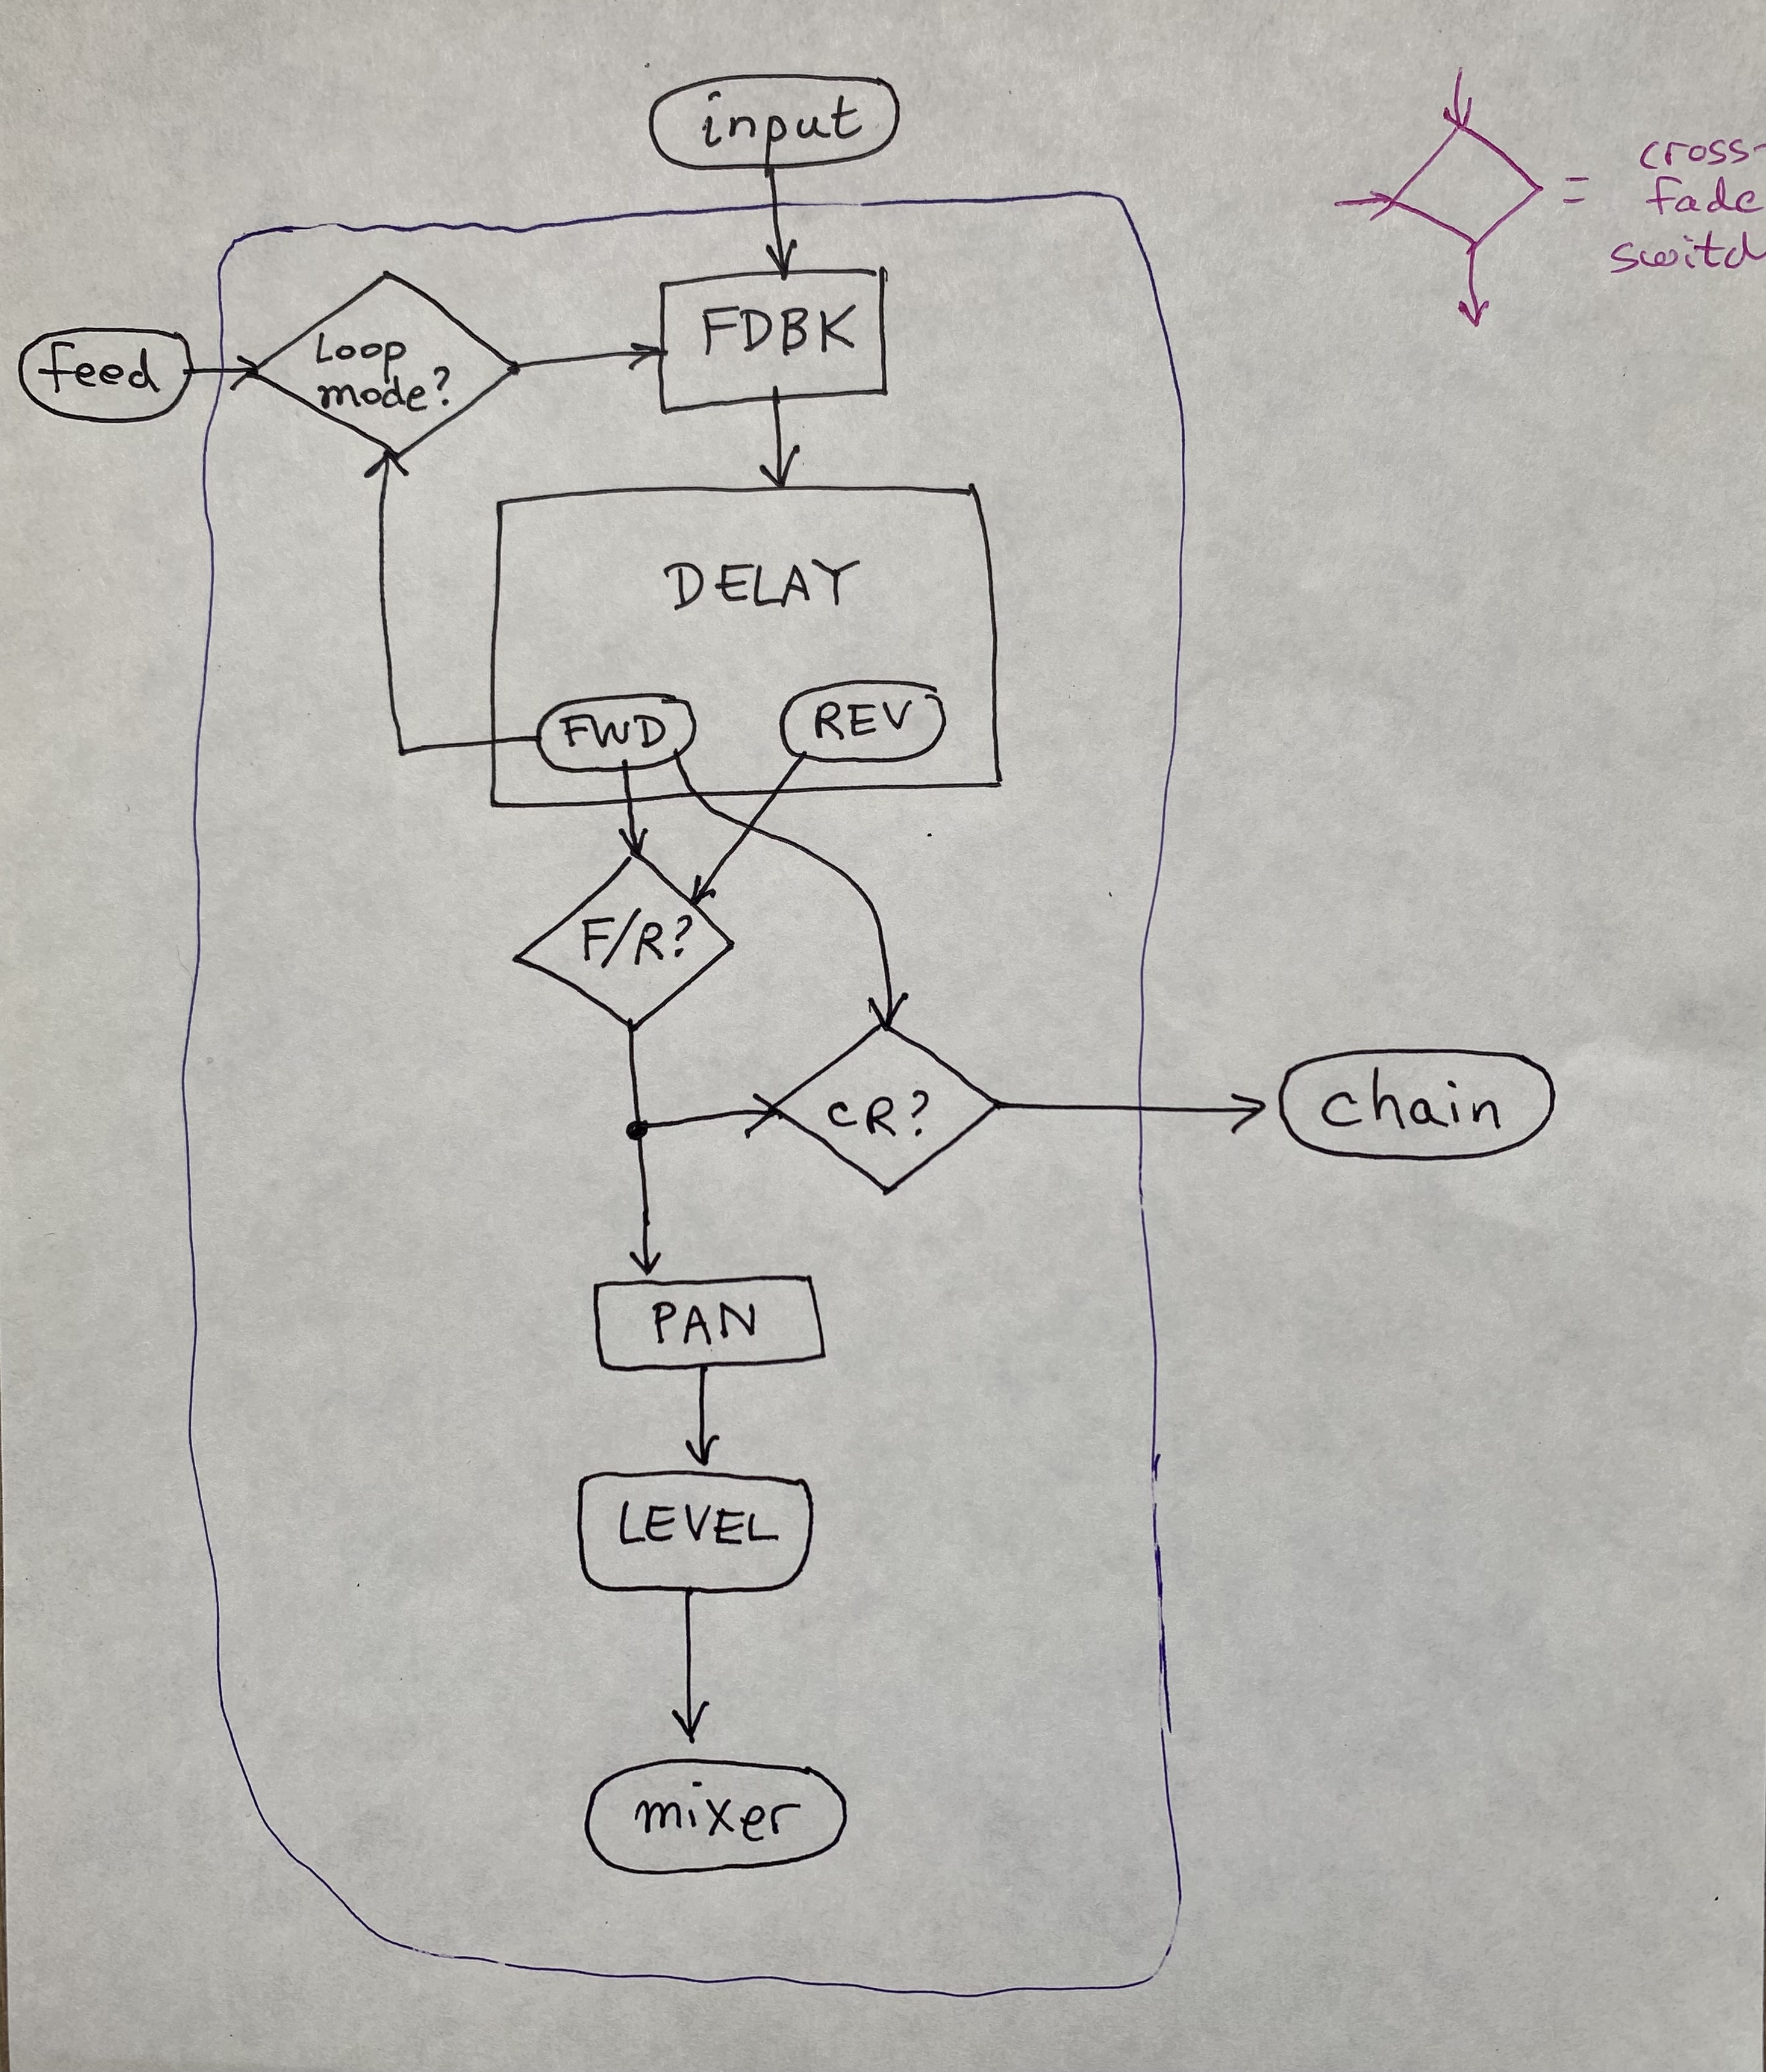 input
cross-
= fade
switc
feed
Loop
mode?
FDBK
DELAY
FWD
REV
F/R?
CR?
chain
PAN
LEVEL
mixer